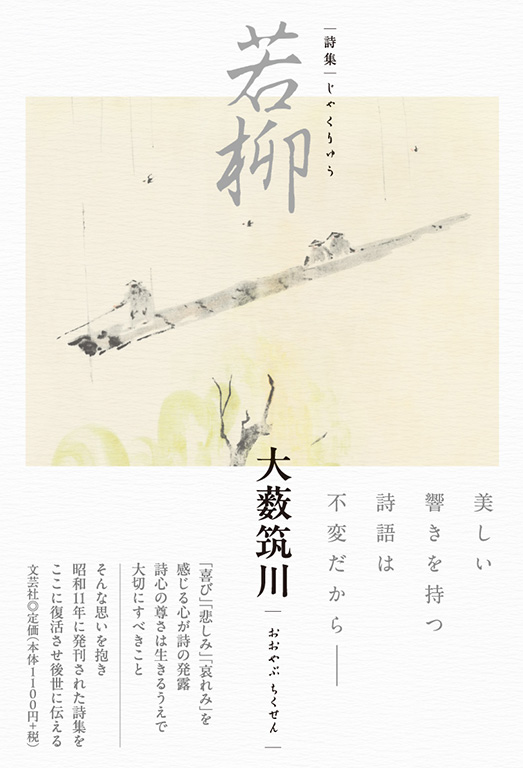 ｜詩集｜じゃくりゅう
若柳
美しい
響きを持つ
詩語は
不変だから――
大薮筑川｜おおやぶ ちくせん｜
「喜び」「悲しみ」「哀れみ」を
感じる心が詩の発露
詩心の尊さは生きるうえで
大切にすべきこと
そんな思いを抱き
昭和11年に発刊された詩集を
ここに復活させ後世に伝える
文芸社◎定価（本体1100円＋税）